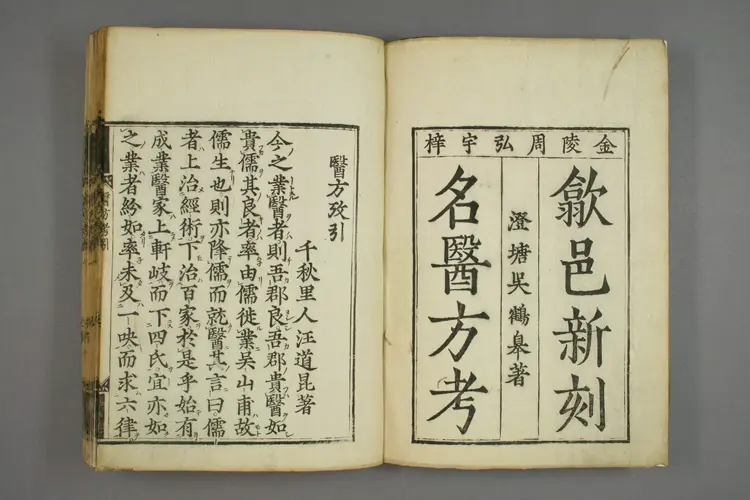 金陵周弘宇梓
歙邑新刻
澄塘吳鶴皐著
名醫方考
醫方攷引
千秋里人汪道昆著
今之業醫者則吾郡良吾郡貴醫如
貴儒其良者率由儒徙業吳山甫故
儒生也則亦降儒而就醫其言曰儒
者上治經術下治百家於是乎始有
成業醫家上軒岐而下四氏宜亦如
之業者紛如率未及一吷而求六律